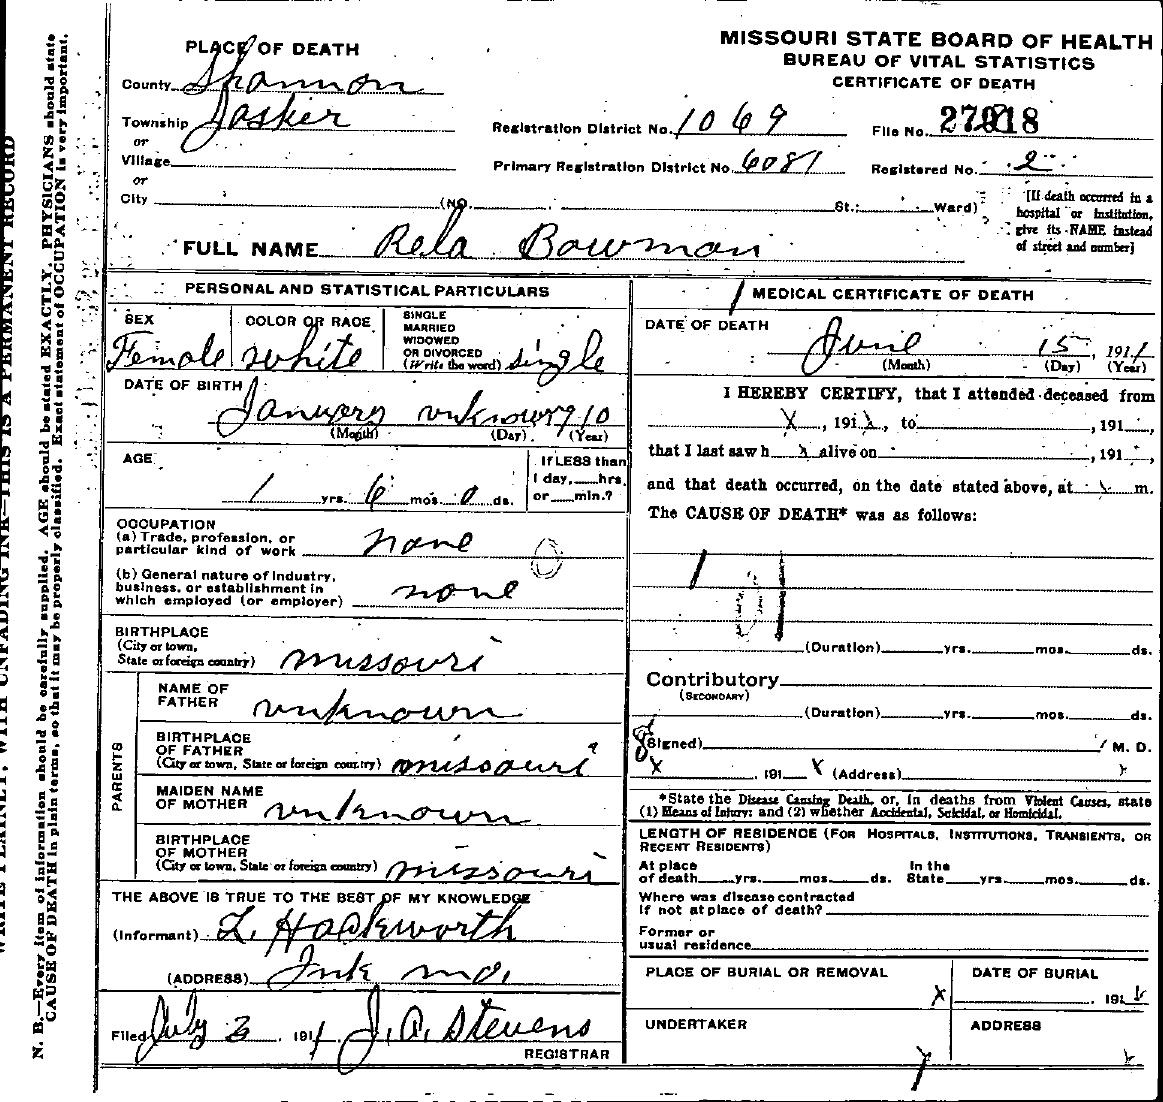 MISSOURI STATE BOARD OF HEALTH
BUREAU OF VITAL STATISTICS
CERTIFICATE OF DEATH
PLACE OF DEATH
County Shannon
Township Jasker
or
Village
or
City (NO. St.; Ward)
Registration District No. 1069
File No.
Primary Registration District No. 6081
Registered No. 2
[If death occurred in a
hospital or institution,
give its NAME instead
of street and number]
FULL NAME Rela Bowman
PERSONAL AND STATISTICAL PARTICULARS
SEX
Female
COLOR OR RACE
white
SINGLE
MARRIED
WIDOWED
OR DIVORCED
(Write the word) single
DATE OF BIRTH
January unknown 1910
(Month) (Day) (Year)
AGE
1 yrs. 6 mos. 0 ds.
If LESS than
1 day, hrs.
or min.?
OCCUPATION
(a) Trade, profession, or
particular kind of work none
(b) General nature of industry,
business, or establishment in
which employed (or employer) none
BIRTHPLACE
(City or town,
State or foreign country) missouri
PARENTS
NAME OF
FATHER unknown
BIRTHPLACE
OF FATHER
(City or town, State or foreign country) missouri
MAIDEN NAME
OF MOTHER unknown
BIRTHPLACE
OF MOTHER
(City or town, State or foreign country) missouri
THE ABOVE IS TRUE TO THE BEST OF MY KNOWLEDGE
(Informant) L. Hackworth
(ADDRESS) Ink mo.
Filed July 3, 1911 J. A. Stevens
REGISTRAR
MEDICAL CERTIFICATE OF DEATH
DATE OF DEATH
June 15, 1911
(Month) (Day) (Year)
I HEREBY CERTIFY, that I attended deceased from
X, 191X, to , 191 ,
that I last saw h X alive on , 191 ,
and that death occurred, on the date stated above, at m.
The CAUSE OF DEATH* was as follows:
(Duration) yrs. mos. ds.
Contributory
(SECONDARY)
(Duration) yrs. mos. ds.
(Signed) M. D.
X , 191 X (Address)
*State the Disease Causing Death, or, in deaths from Violent Causes, state
(1) Means of Injury; and (2) whether Accidental, Suicidal, or Homicidal.
LENGTH OF RESIDENCE (FOR HOSPITALS, INSTITUTIONS, TRANSIENTS, OR
RECENT RESIDENTS)
At place In the
of death yrs. mos. ds. State yrs. mos. ds.
Where was disease contracted
if not at place of death?
Former or
usual residence
PLACE OF BURIAL OR REMOVAL
X
DATE OF BURIAL
191
UNDERTAKER
ADDRESS
WRITE PLAINLY, WITH UNFADING INK—THIS IS A PERMANENT RECORD
N. B.—Every item of information should be carefully supplied. AGE should be stated EXACTLY. PHYSICIANS should state
CAUSE OF DEATH in plain terms, so that it may be properly classified. Exact statement of OCCUPATION is very important.